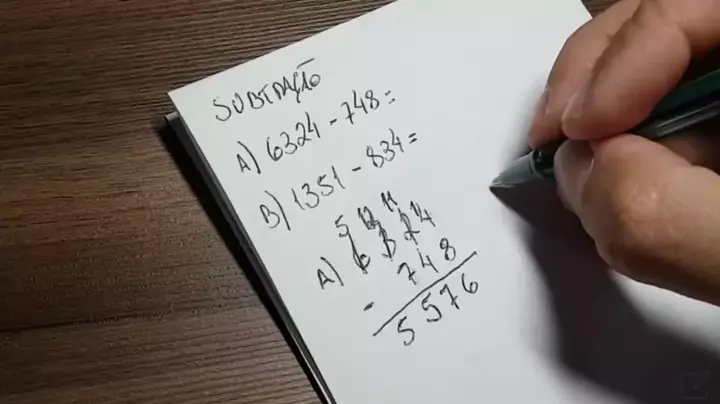 SUBTRAÇÃO
A) 6324 - 748 =
B) 1351 - 834 =
5 12 11
A) 6324
- 748
5576